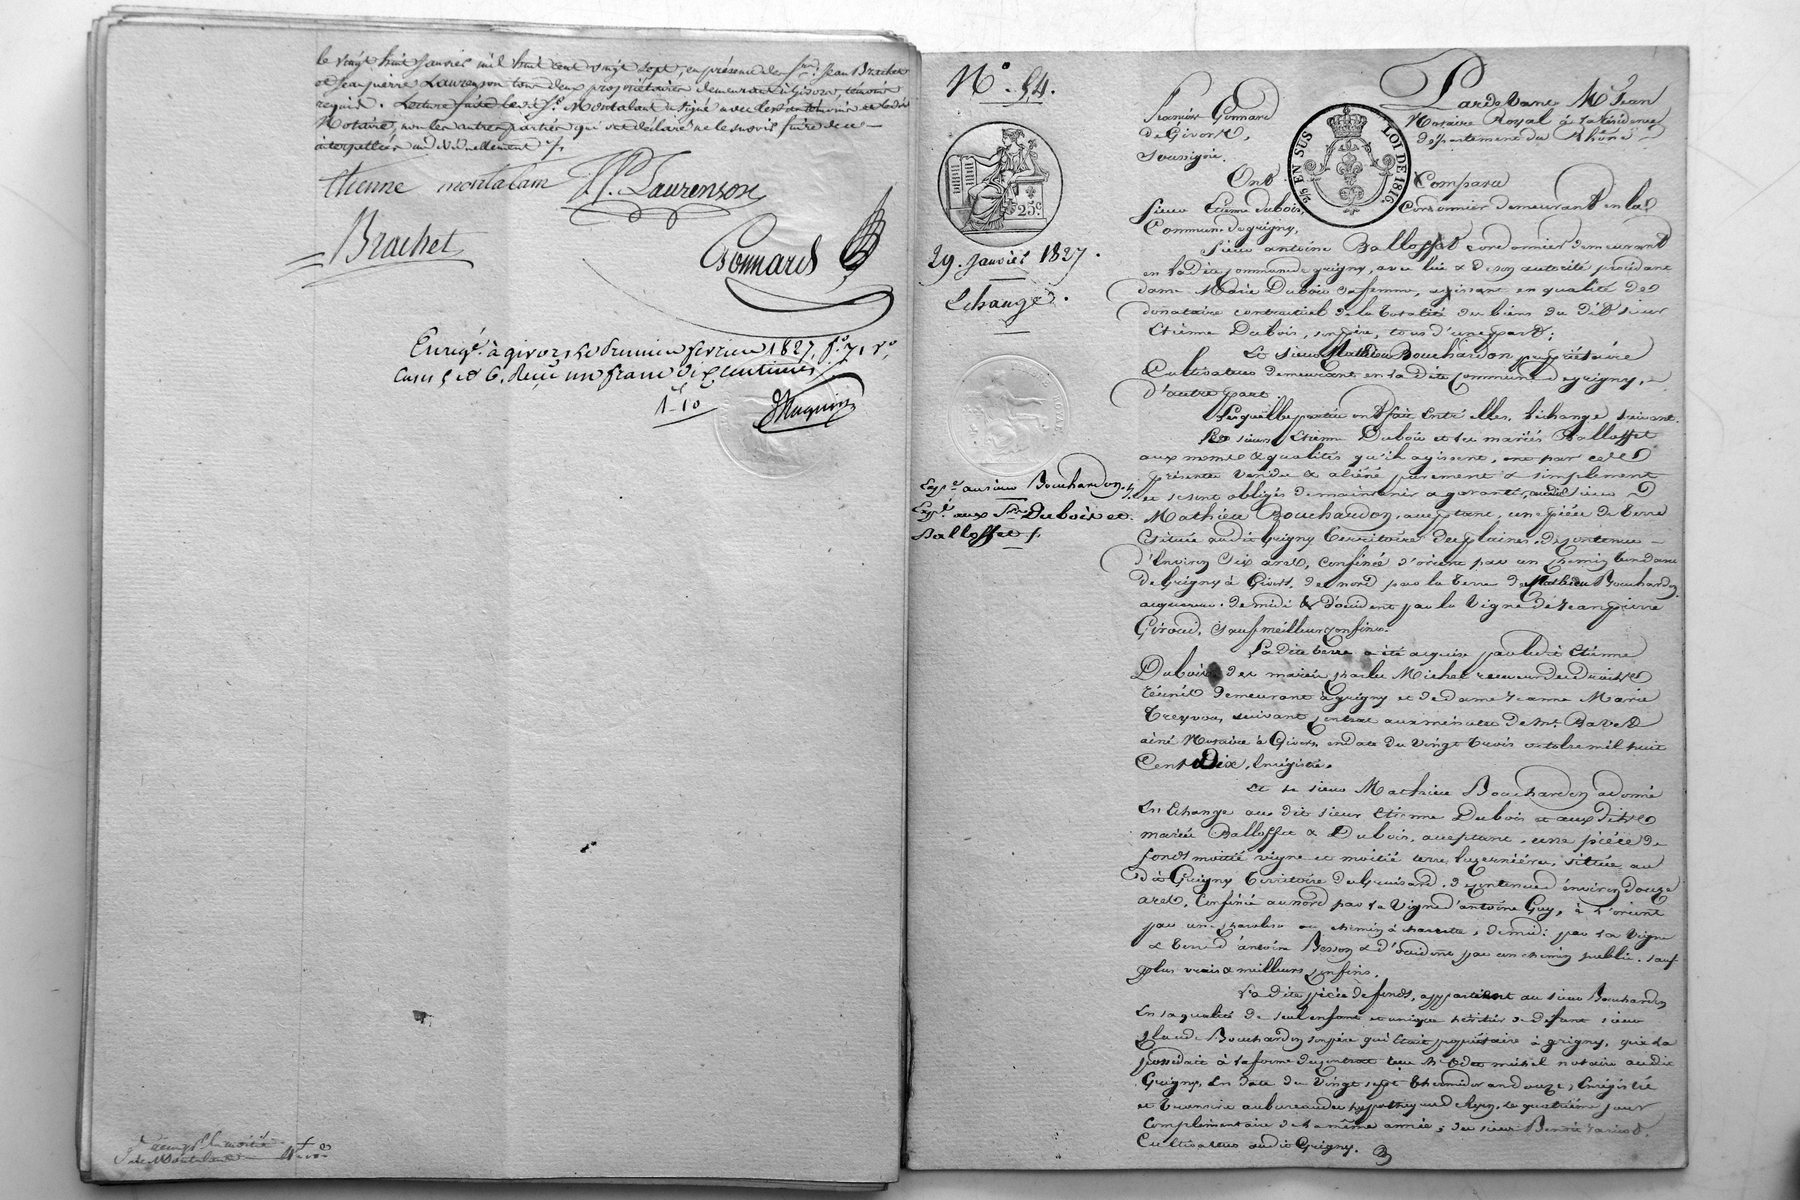 le vingt huit janvier mil huit cent vingt sept, en présence des srs Jean Brachet
et Jean pierre Laurenson tous deux propriétaires demeurant à Givors, témoins
requis. Lecture faite le dit sr. Montalant a signé avec les témoins et le dit
Notaire, non les autres parties qui ont déclaré ne le savoir faire de ce
interpellés individuellement
Etienne montalant JP. Laurenson
Brachet
Gonnard
Enregé. à givors le premier fevrier 1827, fo. 7, ro,
Cases 5 et 6. Reçu un franc dix centimes
1f 10
No. 54.
25c
29. janvier 1827.
Echange.
Expé. au sieur Bouchardon,
Expé. aux Srs Dubois et
Balloffet
2/5 EN SUS
LOI DE 1816.
Pardevant Me. Jean
francois Gonnard Notaire Royal à la résidence
de Givors, département du Rhône
soussigné.
Ont Comparu
sieur Etienne dubois, Cordonnier demeurant en la
Commune de grigny,
sieur antoine Balloffet cordonnier demeurant
en la dite commune de grigny, avec lui & de son autorité procédant
dame Marie Dubois sa femme, agissant en qualité de
donataire contractuel de la totalité des biens du dit sieur
Etienne Dubois, son père, tous d'une part;
Et sieur Mathieu Bouchardon, propriétaire
Cultivateur demeurant en la dite commune de grigny,
d'autre part
Lesquelles parties ont fait entr'elles, l'échange suivant.
Les sieurs Etienne Dubois et les mariés Balloffet
aux mêmes & qualités qu'ils agissent, ont par ces
présentes vendu & aliéné purement & simplement
et se sont obligés de maintenir & garantir, audit sieur
Mathieu Bouchardon, acceptant, une pièce de terre
située audit Grigny territoire des plaines, de contenue
d'environ six ares, confinée d'orient par un chemin tendant
de Grigny à Givors, de nord par la terre de Mathieu Bouchardon
acquereur, de midi & d'occident par la vigne de Jean pierre
Giroud, sauf meilleurs confins.
La dite terre a été acquise par le dit Etienne
Dubois des mariés Michel receveur des droits
réunis demeurant à grigny et de dame Jeanne Marie
Treyvoux suivant contrat aux minutes de Me. Bavet
ainé Notaire à Givors en date du vingt trois octobre mil huit
Cent Dix, Enrégistré.
Et le sieur Mathieu Bouchardon a donné
En Echange au dit sieur Etienne Dubois et aux dits
mariés Balloffet & Dubois, acceptant, une pièce de
fonds moitié vigne et moitié terre luzernière, située au
dit Grigny territoire du de contenue d'environ douze
ares, Confinée au nord par la vigne d'antoine Guy, à l'orient
par un ou chemin à charette, de midi par la vigne
& terre d'antoine Besson & d'occident par un chemin public. sauf
plus vrais & meilleurs confins.
La dite pièce de fonds, appartient au sieur Bouchardon
En sa qualité de seul enfant et unique héritier de défunt sieur
Claude Bouchardon son père qui était propriétaire à grigny, qui la
possedait à la forme du contrat reçu Me Odet michel notaire audit
Grigny, En date du vingt sept thermidor an douze, Enrégistré
et transcrit au bureau des hypothèques de Lyon, le quatrième jour
complémentaire de la même année, du sieur Benoit
Cultivateur audit Grigny.